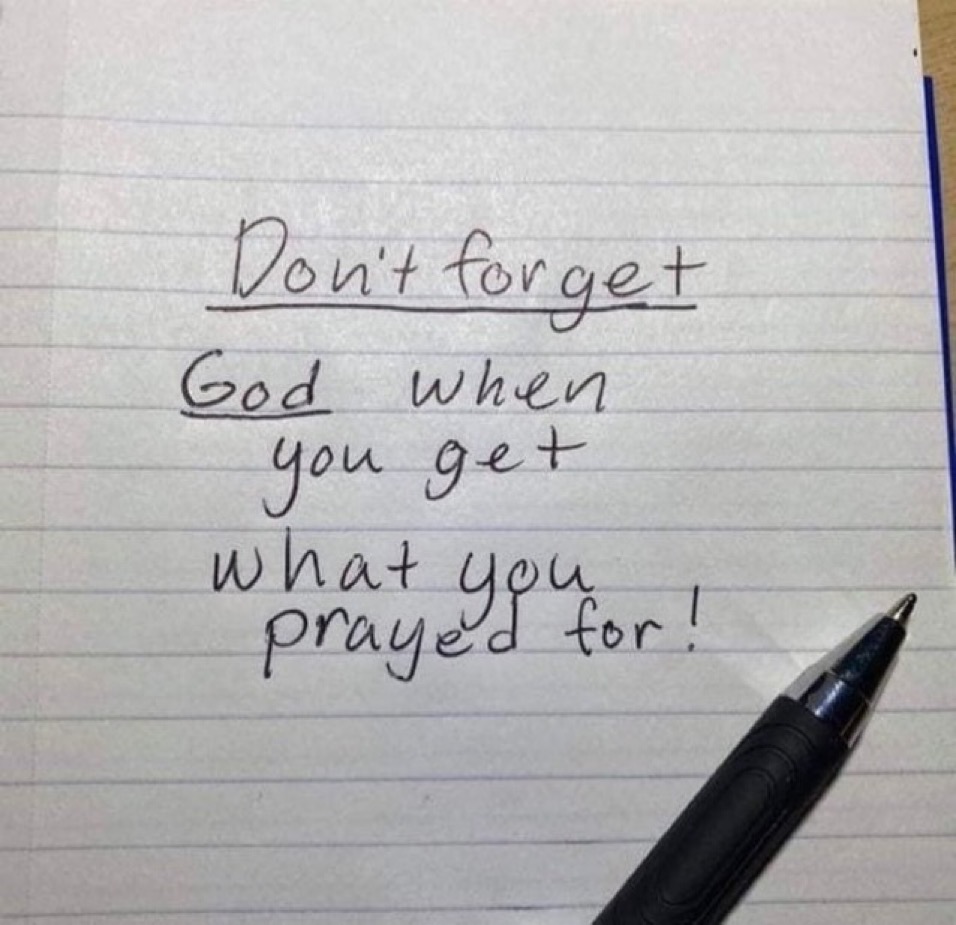 Don't forget
God when
you get
what you
prayed for!